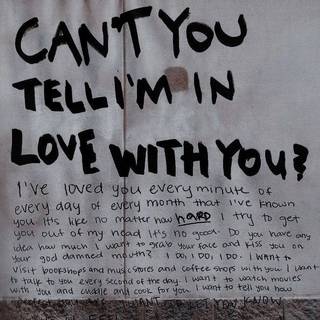 CAN'T YOU
TELL I'M IN
LOVE WITH YOU?
I've loved you every minute of
every day of every month that i've known
you. It's like no matter how hARD I try to get
you out of my head It's no good. Do you have any
idea how much I want to grab your face and kiss you on
your god damned mouth? I DO, I DO, I DO. I want to
visit bookshops and music stores and coffee shops with you. I want
to talk to you every second of the day. I want to watch movies
with you and cuddle and cook for you. I want to tell you how
YOU KNOW